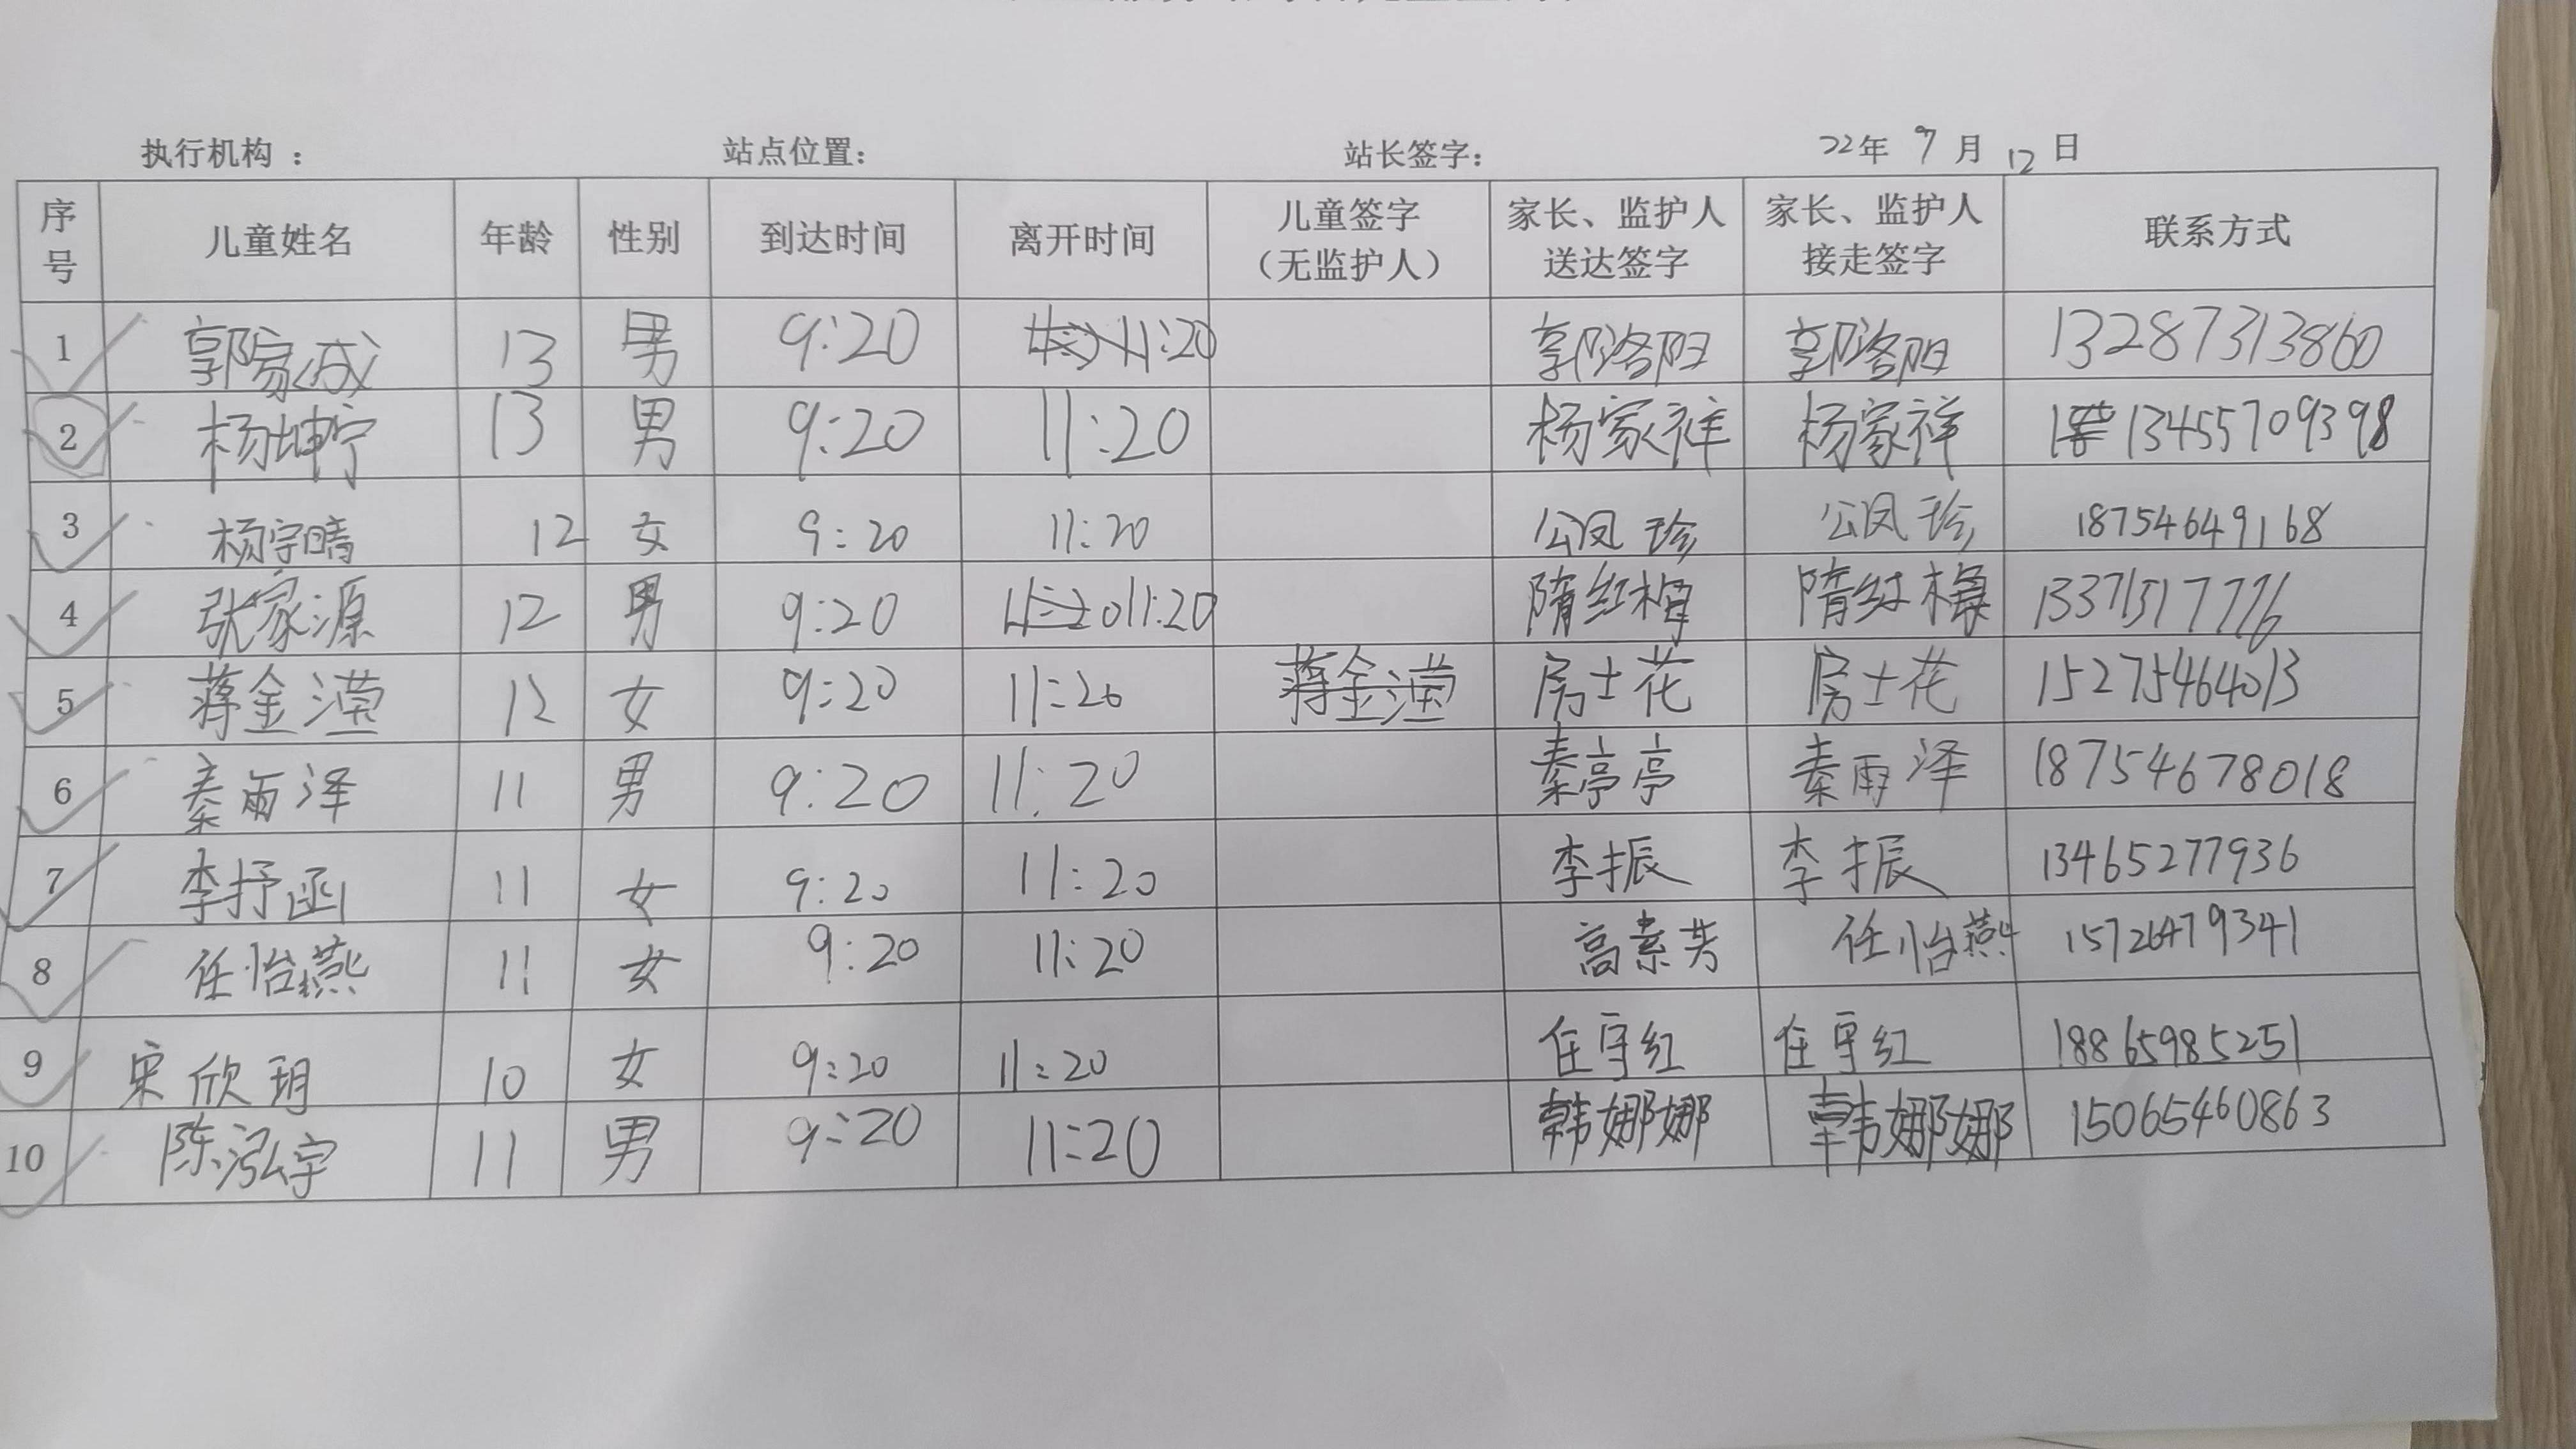 执行机构： 站点位置： 站长签字： 22年 7月 12日
序号 儿童姓名 年龄 性别 到达时间 离开时间 儿童签字（无监护人） 家长、监护人送达签字 家长、监护人接走签字 联系方式
1 郭家成 13 男 9:20 11:20 郭洛阳 郭洛阳 13287313860
2 杨坤宁 13 男 9:20 11:20 杨家祥 杨家祥 13455709398
3 杨宇晴 12 女 9:20 11:20 公凤珍 公凤珍 18754649168
4 张家源 12 男 9:20 11:20 隋红梅 隋红梅 13371517776
5 蒋金滢 12 女 9:20 11:20 蒋金滢 房士花 房士花 15275464013
6 秦雨泽 11 男 9:20 11:20 秦亭亭 秦雨泽 18754678018
7 李抒函 11 女 9:20 11:20 李振 李振 13465277936
8 任怡燕 11 女 9:20 11:20 高素芳 任怡燕 15726479341
9 宋欣玥 10 女 9:20 11:20 任守红 任守红 18865985251
10 陈泓宇 11 男 9:20 11:20 韩娜娜 韩娜娜 15065460863